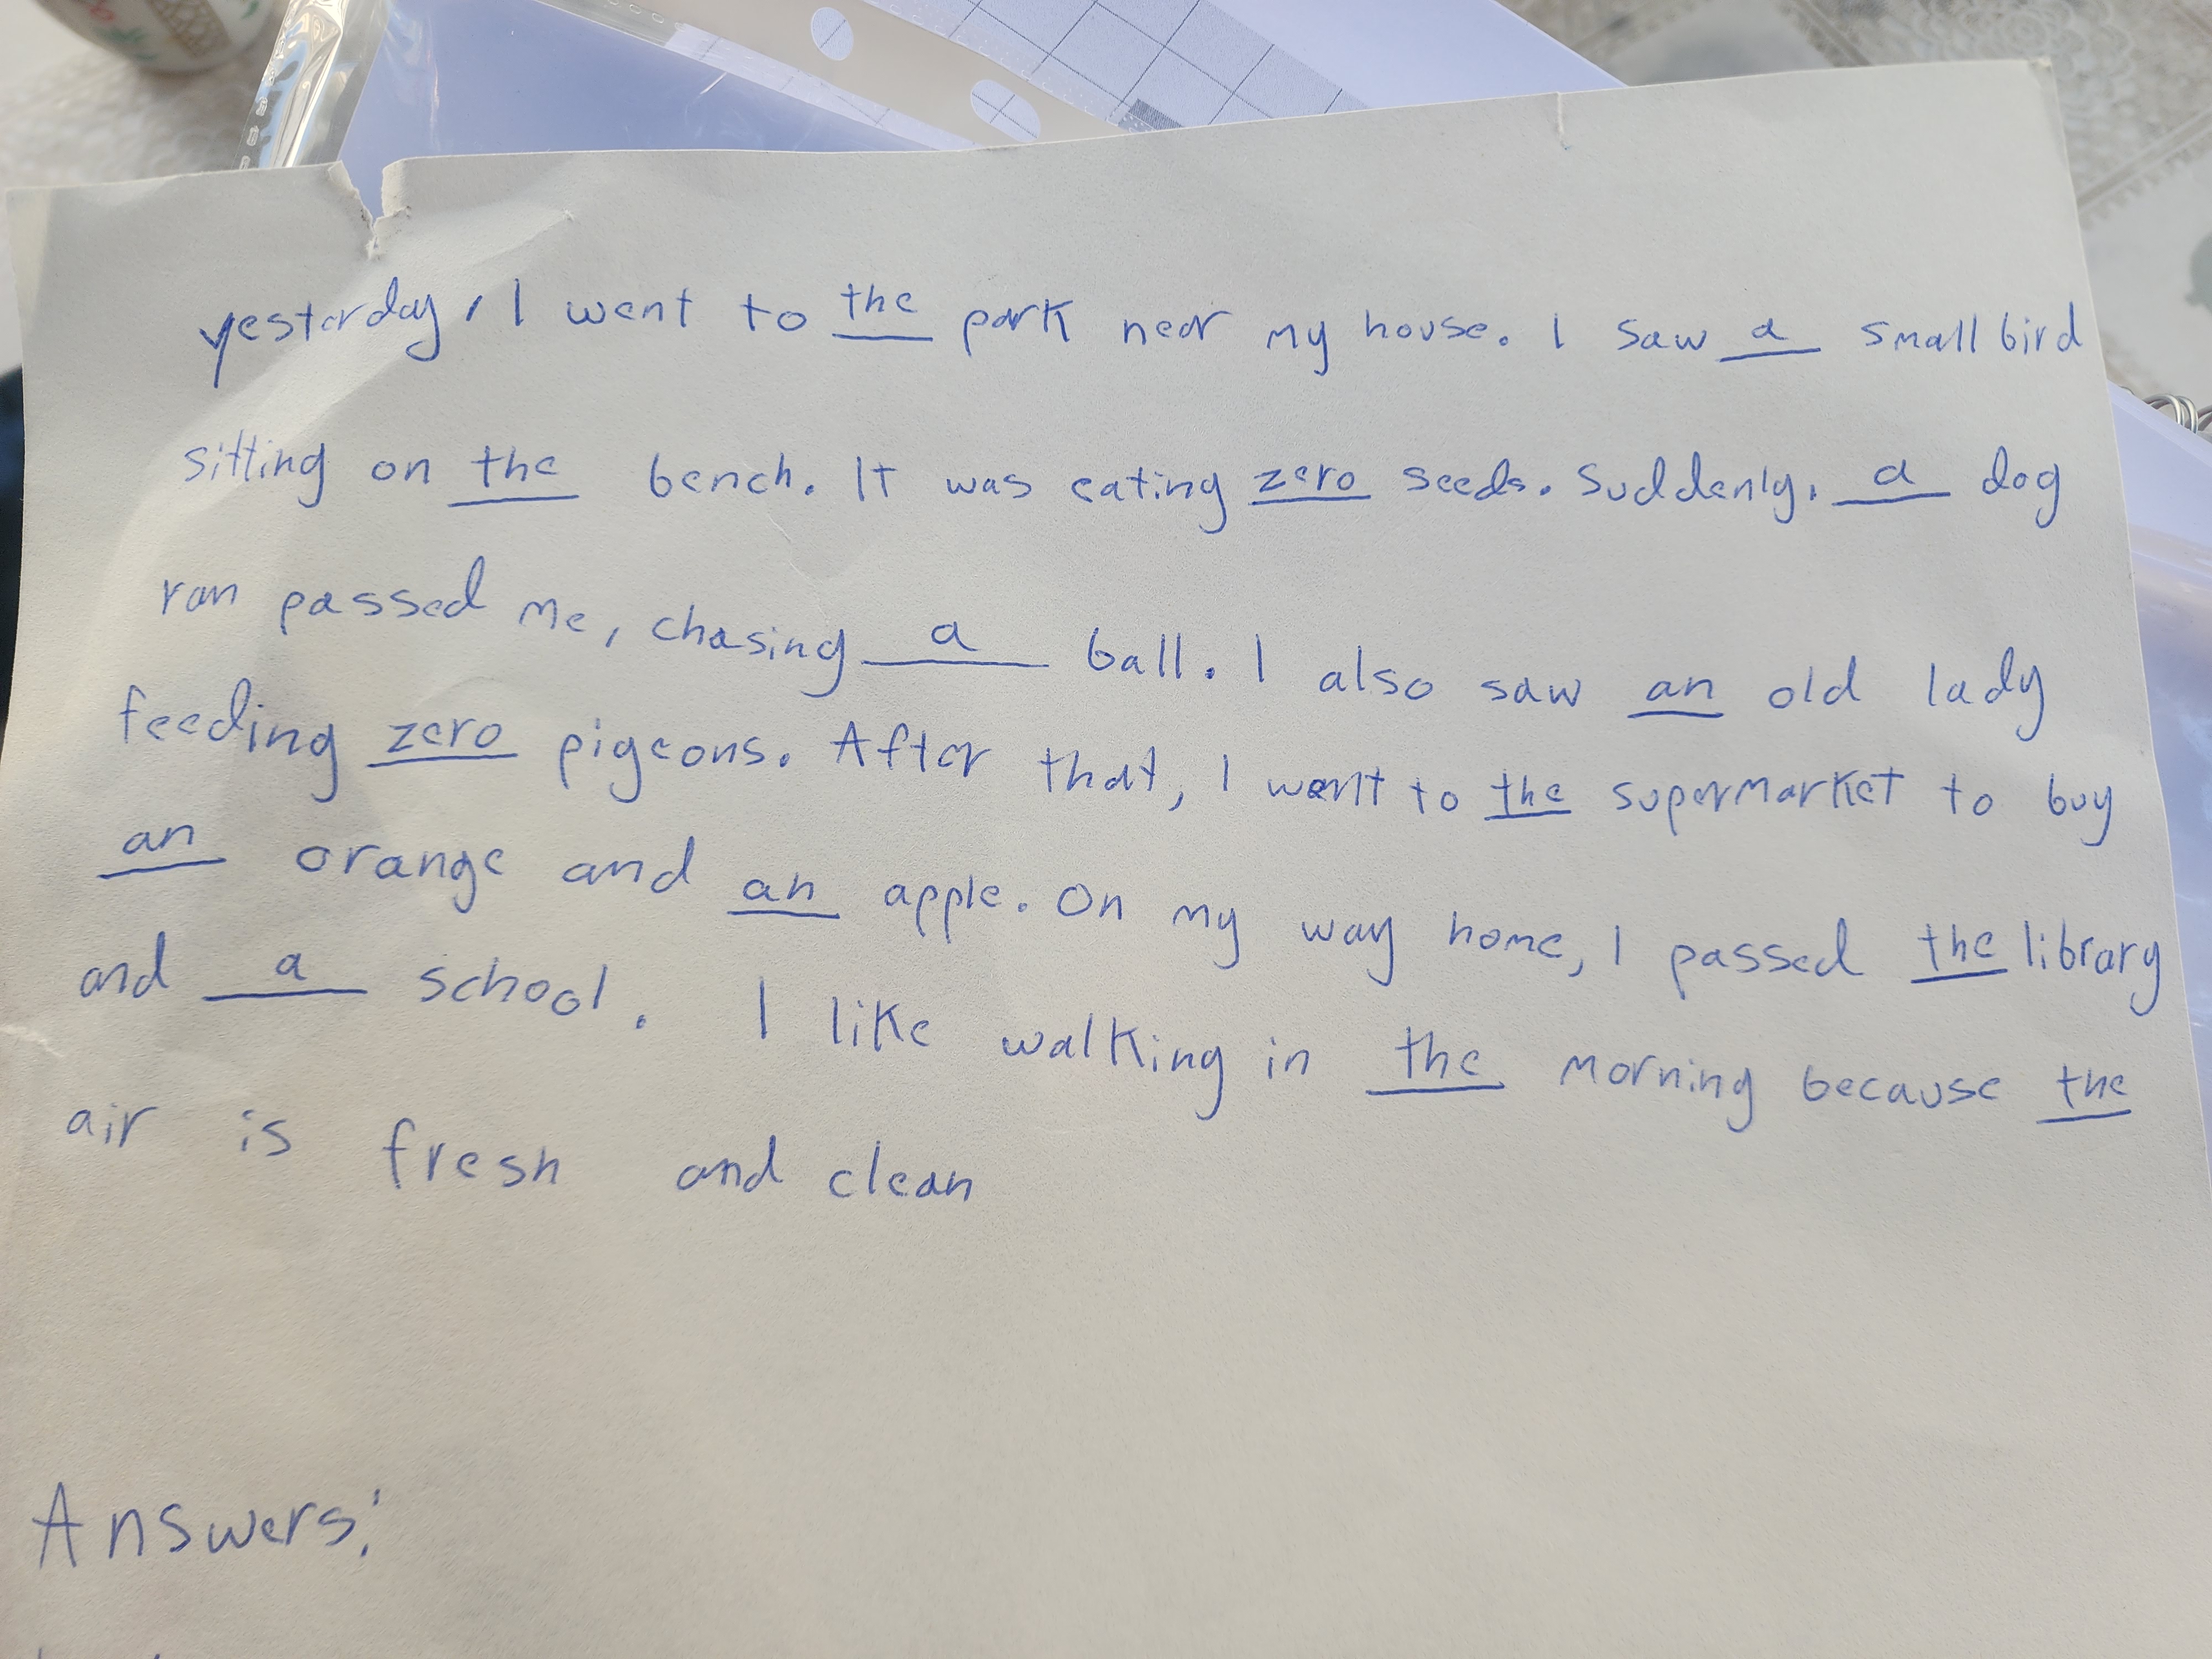 yesterday, I went to the park near my house. I saw a small bird
sitting on the bench. It was eating zero seeds. Suddenly, a dog
ran passed me, chasing a ball. I also saw an old lady
feeding zero pigeons. After that, I went to the supermarket to buy
an orange and an apple. On my way home, I passed the library
and a school. I like walking in the morning because the
air is fresh and clean
Answers: